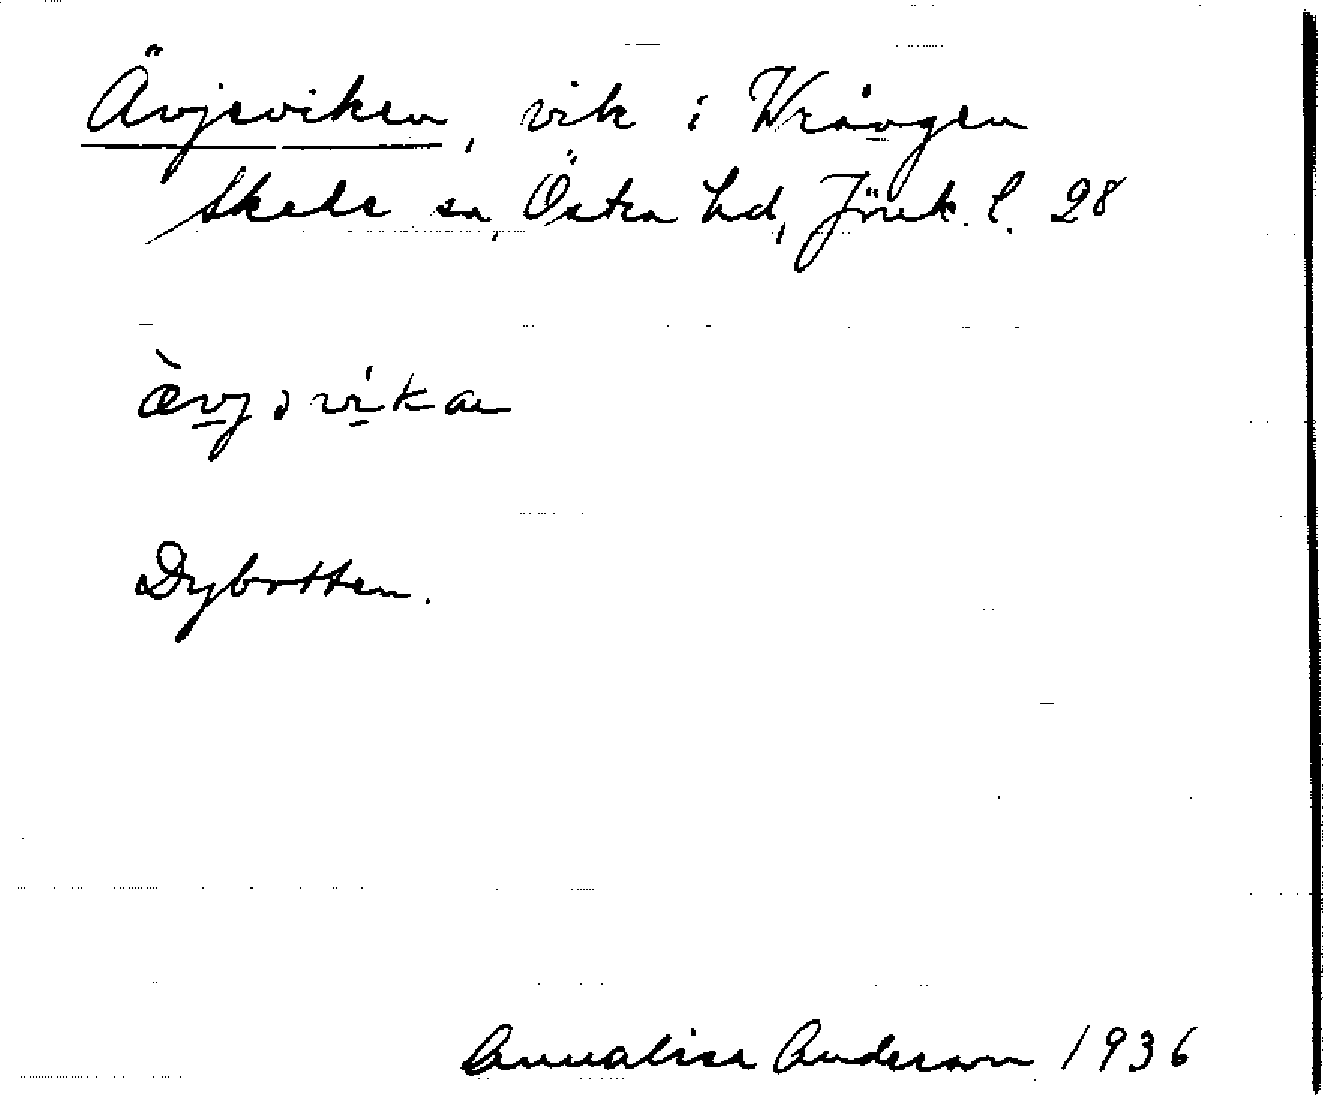 Ävjeviken, vik i Wrången
Skede sn, Östra hd, Jönk. l. 28
ævjəvikan
Dybotten.
Annalisa Anderson 1936